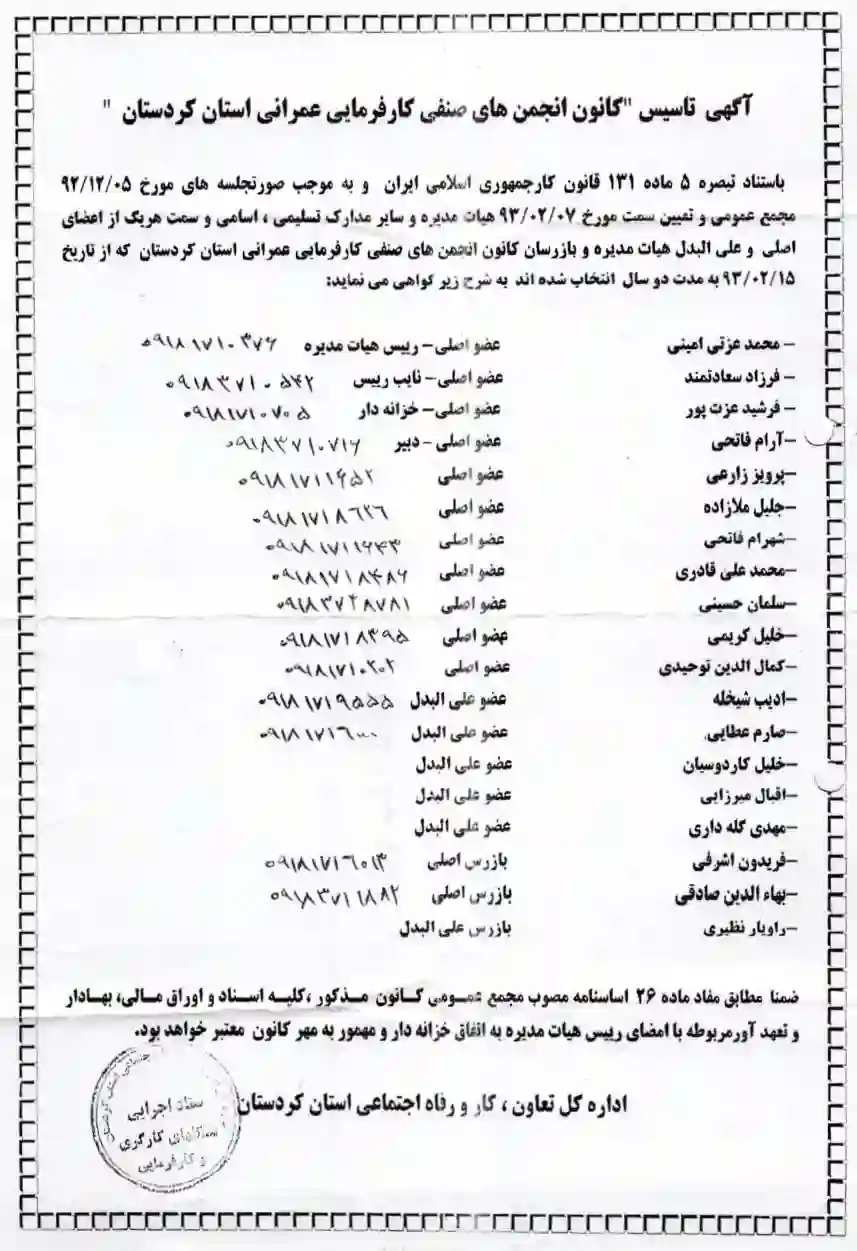 آگهی تاسیس "کانون انجمن های صنفی کارفرمایی عمرانی استان کردستان "
باستناد تبصره ۵ ماده ۱۳۱ قانون کارجمهوری اسلامی ایران و به موجب صورتجلسه های مورخ ۹۲/۱۲/۰۵
مجمع عمومی و تعیین سمت مورخ ۹۳/۰۲/۰۷ هیات مدیره و سایر مدارک تسلیمی ، اسامی و سمت هریک از اعضای
اصلی و علی البدل هیات مدیره و بازرسان کانون انجمن های صنفی کارفرمایی عمرانی استان کردستان که از تاریخ
۹۳/۰۲/۱۵ به مدت دو سال انتخاب شده اند به شرح زیر گواهی می نماید:
- محمد عزتی امینی عضو اصلی- رییس هیات مدیره ۰۹۱۸۱۷۱۰۳۷۶
- فرزاد سعادتمند عضو اصلی- نایب رییس ۰۹۱۸۳۷۱۰۵۴۲
- فرشید عزت پور عضو اصلی- خزانه دار ۰۹۱۸۱۷۱۰۷۰۵
-آرام فاتحی عضو اصلی - دبیر ۰۹۱۸۳۷۱۰۷۱۶
-پرویز زارعی عضو اصلی ۰۹۱۸۱۷۱۱۶۵۲
-جلیل ملازاده عضو اصلی ۰۹۱۸۱۷۱۸۶۲۶
-شهرام فاتحی عضو اصلی ۰۹۱۸۱۷۱۱۶۴۳
-محمد علی قادری عضو اصلی ۰۹۱۸۱۷۱۸۴۸۶
-سلمان حسینی عضو اصلی ۰۹۱۸۳۷۲۸۷۸۱
-خلیل کریمی عضو اصلی ۰۹۱۸۱۷۱۸۳۹۵
-کمال الدین توحیدی عضو اصلی ۰۹۱۸۱۷۱۰۲۰۲
-ادیب شیخله عضو علی البدل ۰۹۱۸۱۷۱۹۵۵۵
-صارم عطایی عضو علی البدل ۰۹۱۸۱۷۱۶۰۰۰
-خلیل کاردوسیان عضو علی البدل
-اقبال میرزایی عضو علی البدل
-مهدی گله داری عضو علی البدل
-فریدون اشرفی بازرس اصلی ۰۹۱۸۱۷۱۶۰۱۳
-بهاء الدین صادقی بازرس اصلی ۰۹۱۸۳۷۱۱۸۸۲
-راویار نظیری بازرس علی البدل
ضمنا مطابق مفاد ماده ۲۶ اساسنامه مصوب مجمع عمومی کانون مذکور ،کلیه اسناد و اوراق مالی، بهادار
و تعهد آورمربوطه با امضای رییس هیات مدیره به اتفاق خزانه دار و ممهور به مهر کانون معتبر خواهد بود.
اداره کل تعاون ، کار و رفاه اجتماعی استان کردستان
ستاد اجرایی
تشکلهای کارگری
و کارفرمایی